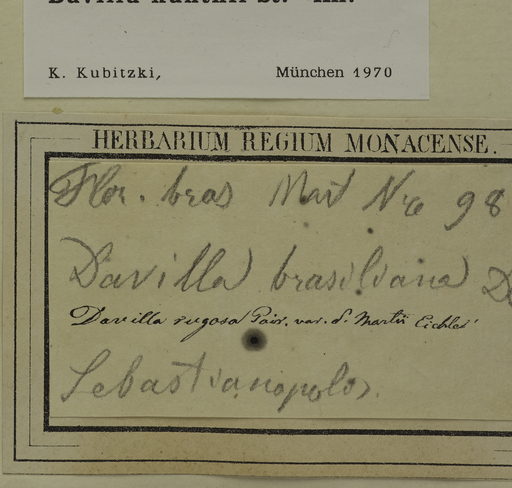 Davilla kunthii St.-Hil.
K. Kubitzki, München 1970
HERBARIUM REGIUM MONACENSE.
Flor. bras Mart Nro 98
Davilla brasiliana D
Davilla rugosa Poir. var. δ. Martii Eichler
Sebastianopolis.